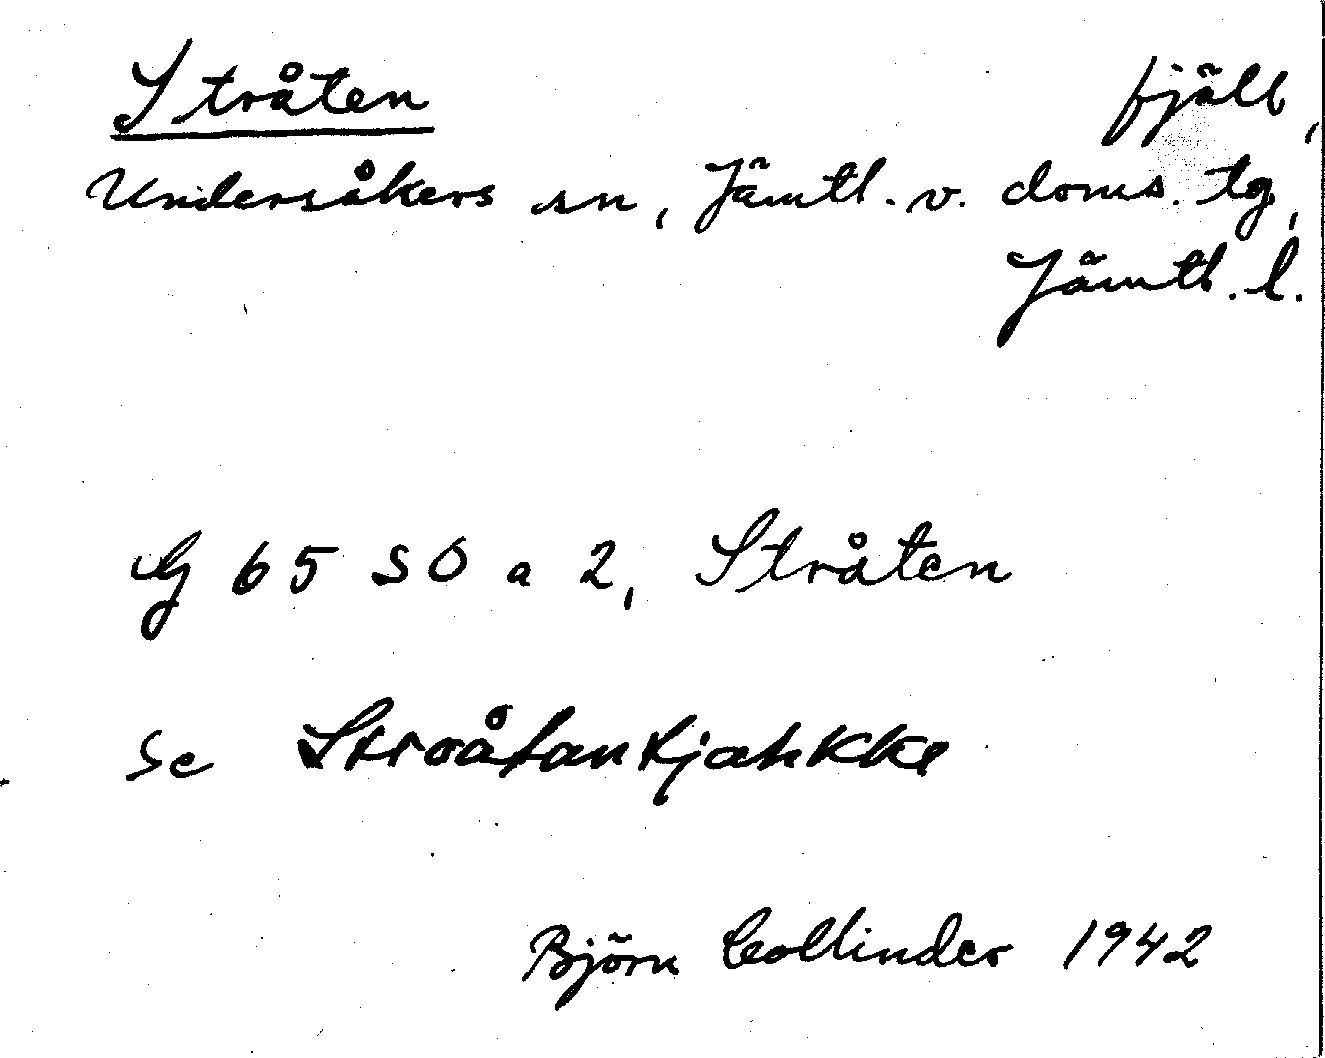 Stråten fjäll,
Undersåkers sn, Jämtl. v. doms. tg,
Jämtl. l.
G 65 SO a 2, Stråten
Se Stroåtantjahkke
Björn Collinder 1942